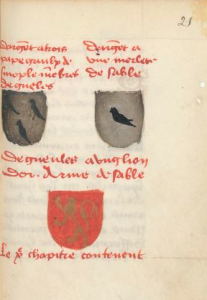 21
Dargent a trois
papegaulx de
sinople membres
de gueles
Dargent a
une merlete
de sable
De gueules a ung lion
dor. Arme de sable
Le xe chapitre contenent